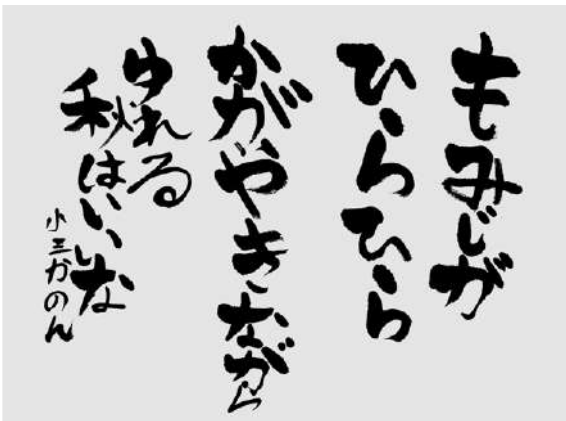 もみじが
ひらひら
かがやきながら
ゆれる
秋はいいな
小三かのん